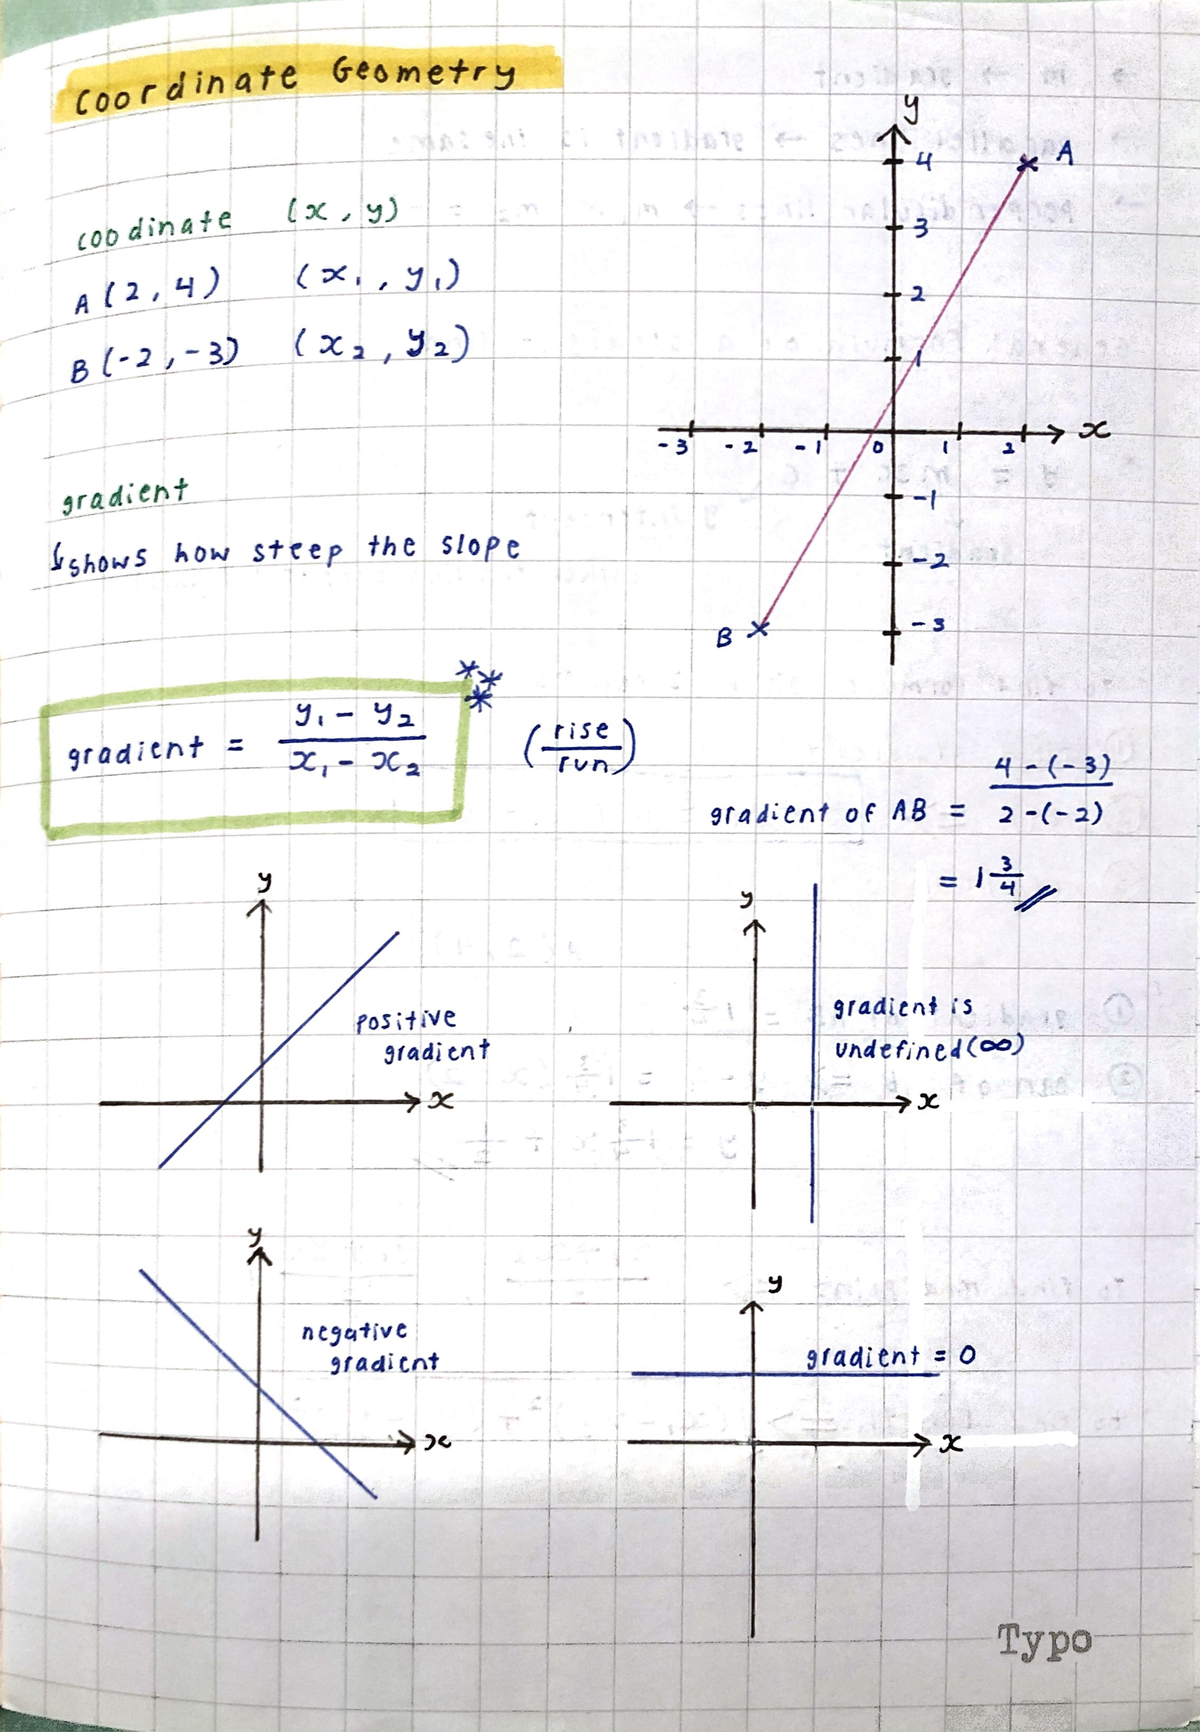 Coordinate Geometry
coodinate (x, y)
A (2, 4) (x₁, y₁)
B (-2, -3) (x₂, y₂)
y
4 A
3
2
1
-3 -2 -1 0 1 2 x
-1
-2
-3
B
gradient
↳ shows how steep the slope
gradient = (y₁ - y₂)/(x₁ - x₂) *** (rise/run)
gradient of AB = (4 - (-3))/(2 - (-2))
= 1 3/4 //
y
positive
gradient
x
y
gradient is
undefined (∞)
x
y
negative
gradient
x
y
gradient = 0
x
Typo